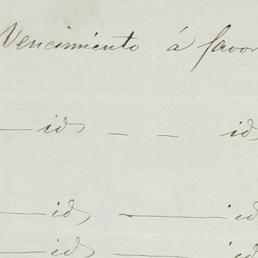 Vencimiento á favor
—— id — — id
—— id —— id
—— id —— id